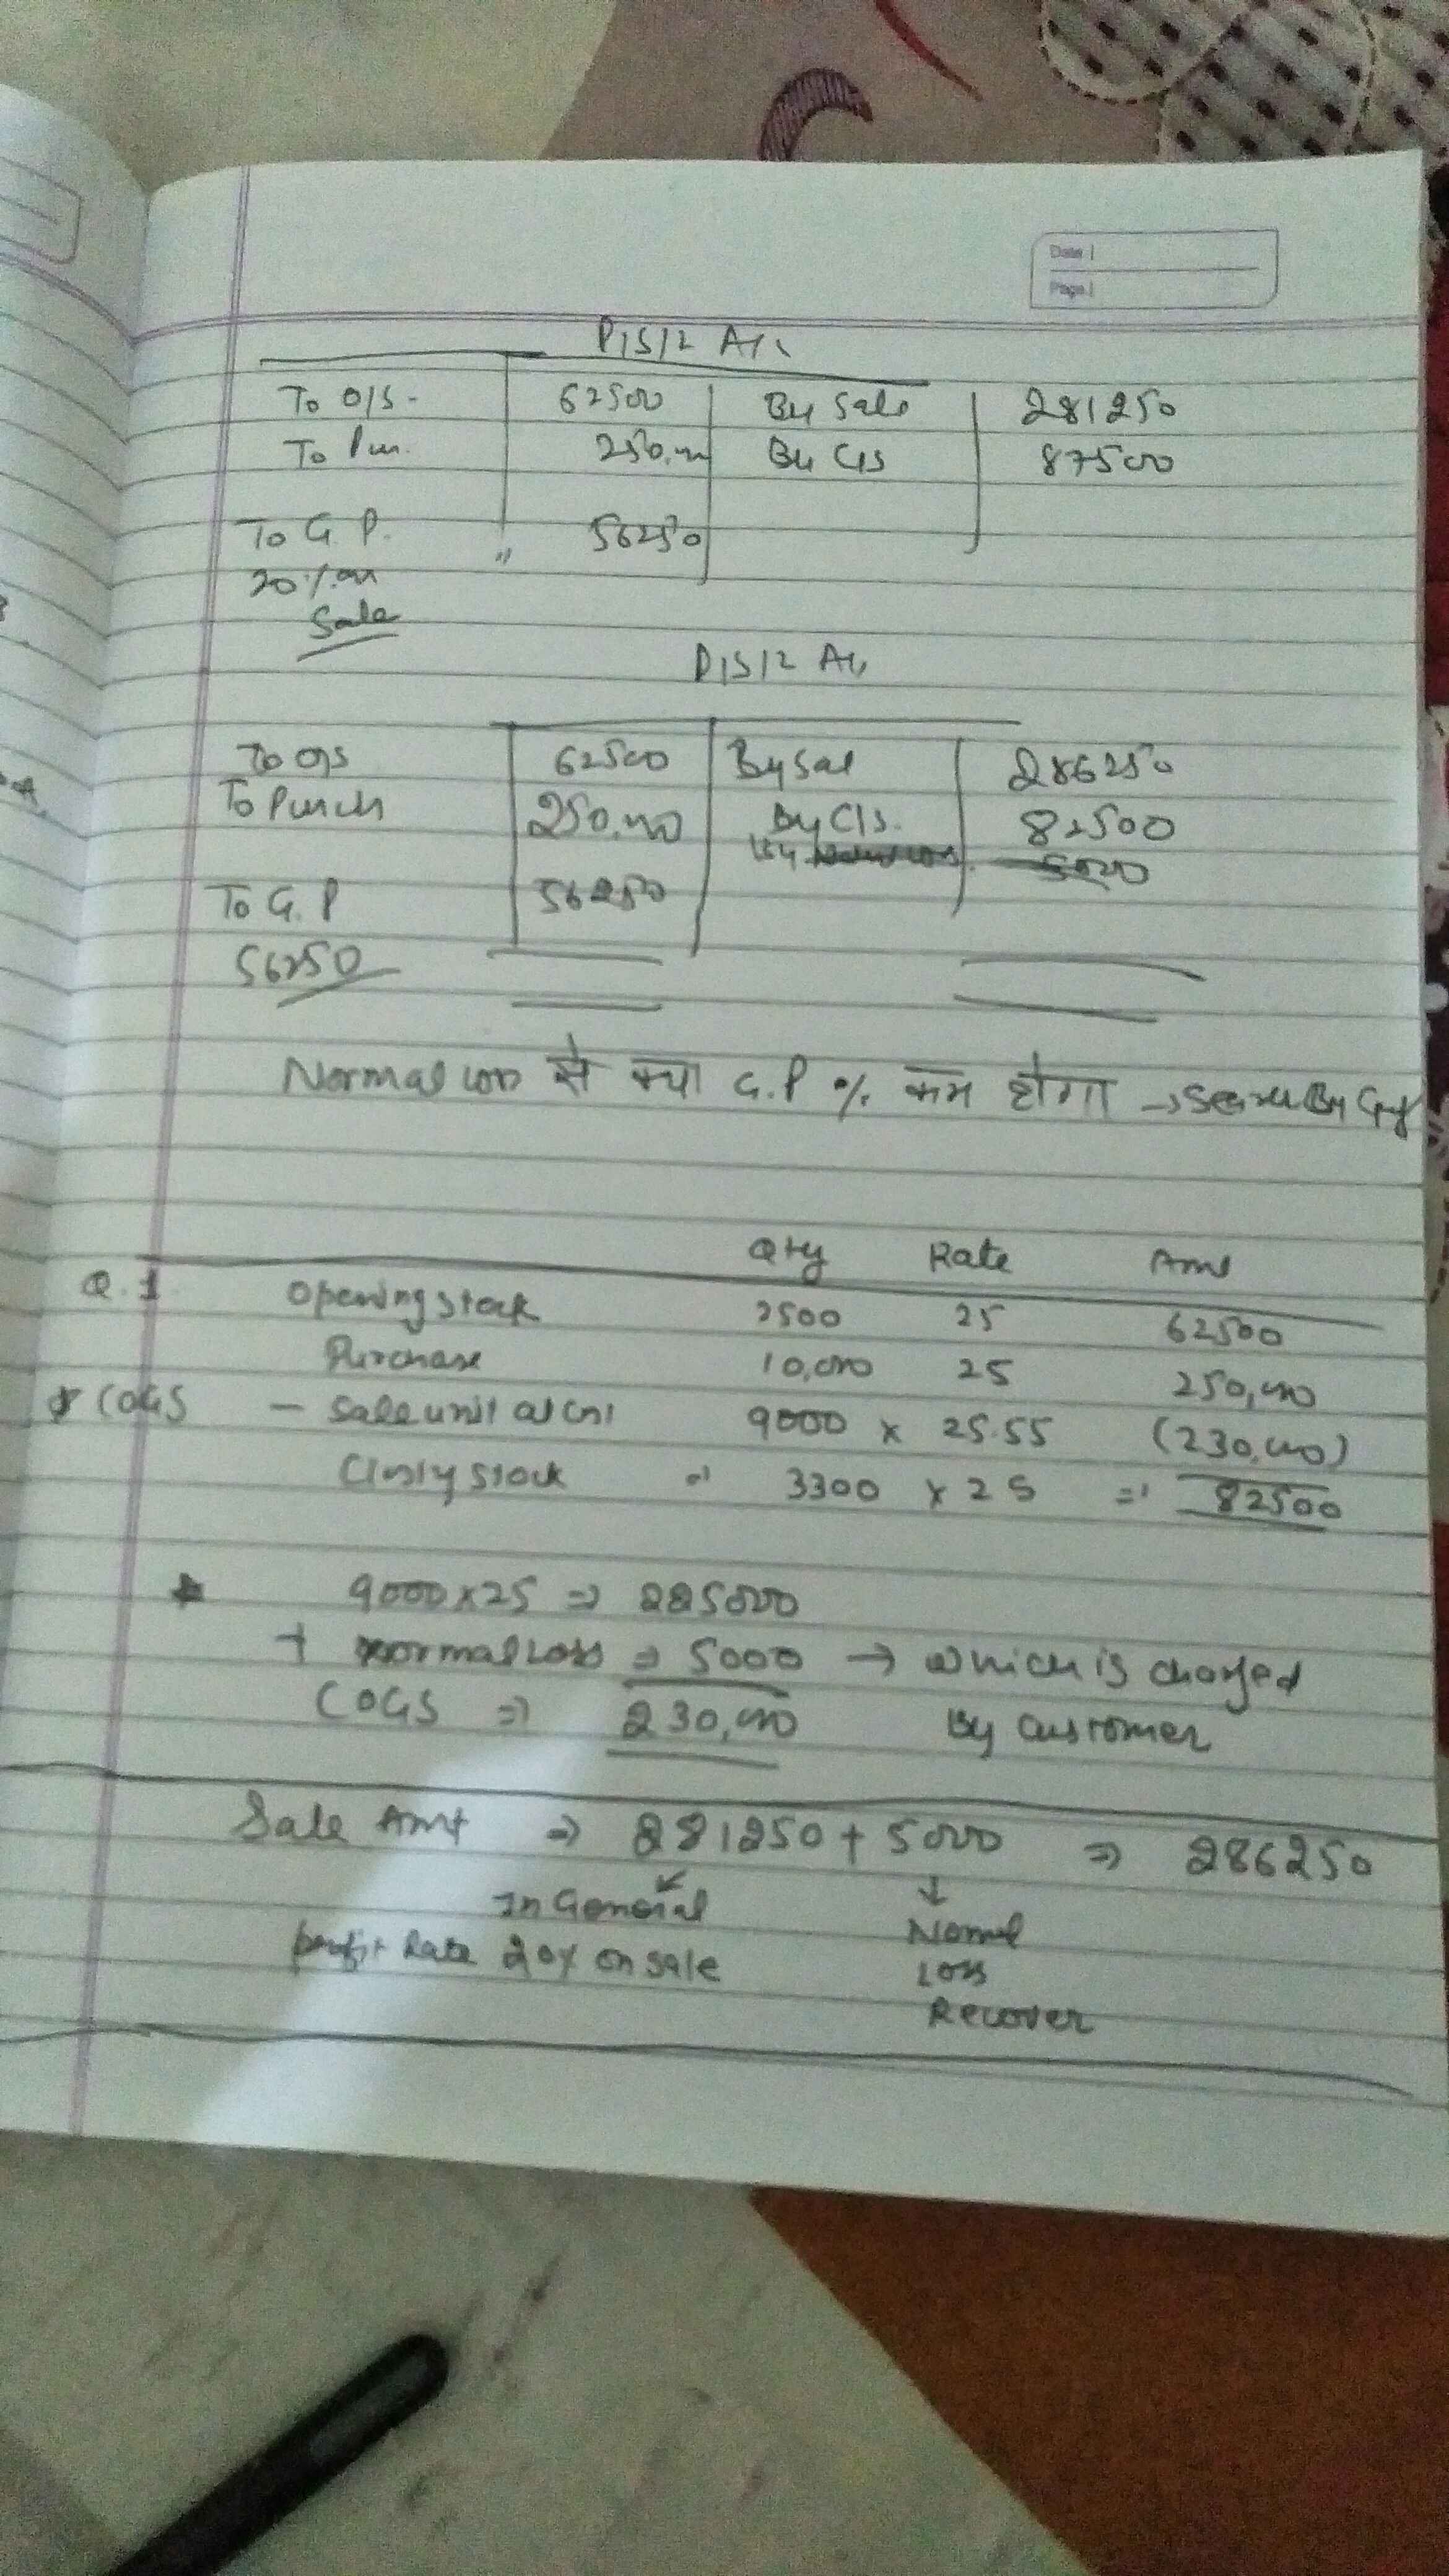 Date
Page
P/S/L A/c
To O/S. 62500 By Sale 281250
To Pur. 250,000 By C/S 87500
To G.P. 56250
20% on "
Sale
P/S/L A/c
To O/S 62500 By Sal 286250
To Purch 250,000 By C/S. 82500
By 5000
To G.P 56250
56250
Normal loss से क्या G.P % कम होगा →
Qty Rate Amt
Q.1 Opening stock 2500 25 62500
Purchase 10,000 25 250,000
COGS - Sale unit at Cost 9000 x 25.55 (230,000)
Closing stock => 3300 x 25 => 82500
9000x25 => 225000
+ normal Loss => 5000 → which is charged
COGS => 230,000 By customer
Sale Amt => 281250 + 5000 => 286250
In General Normal
profit Rate 20% on sale Loss
Recover